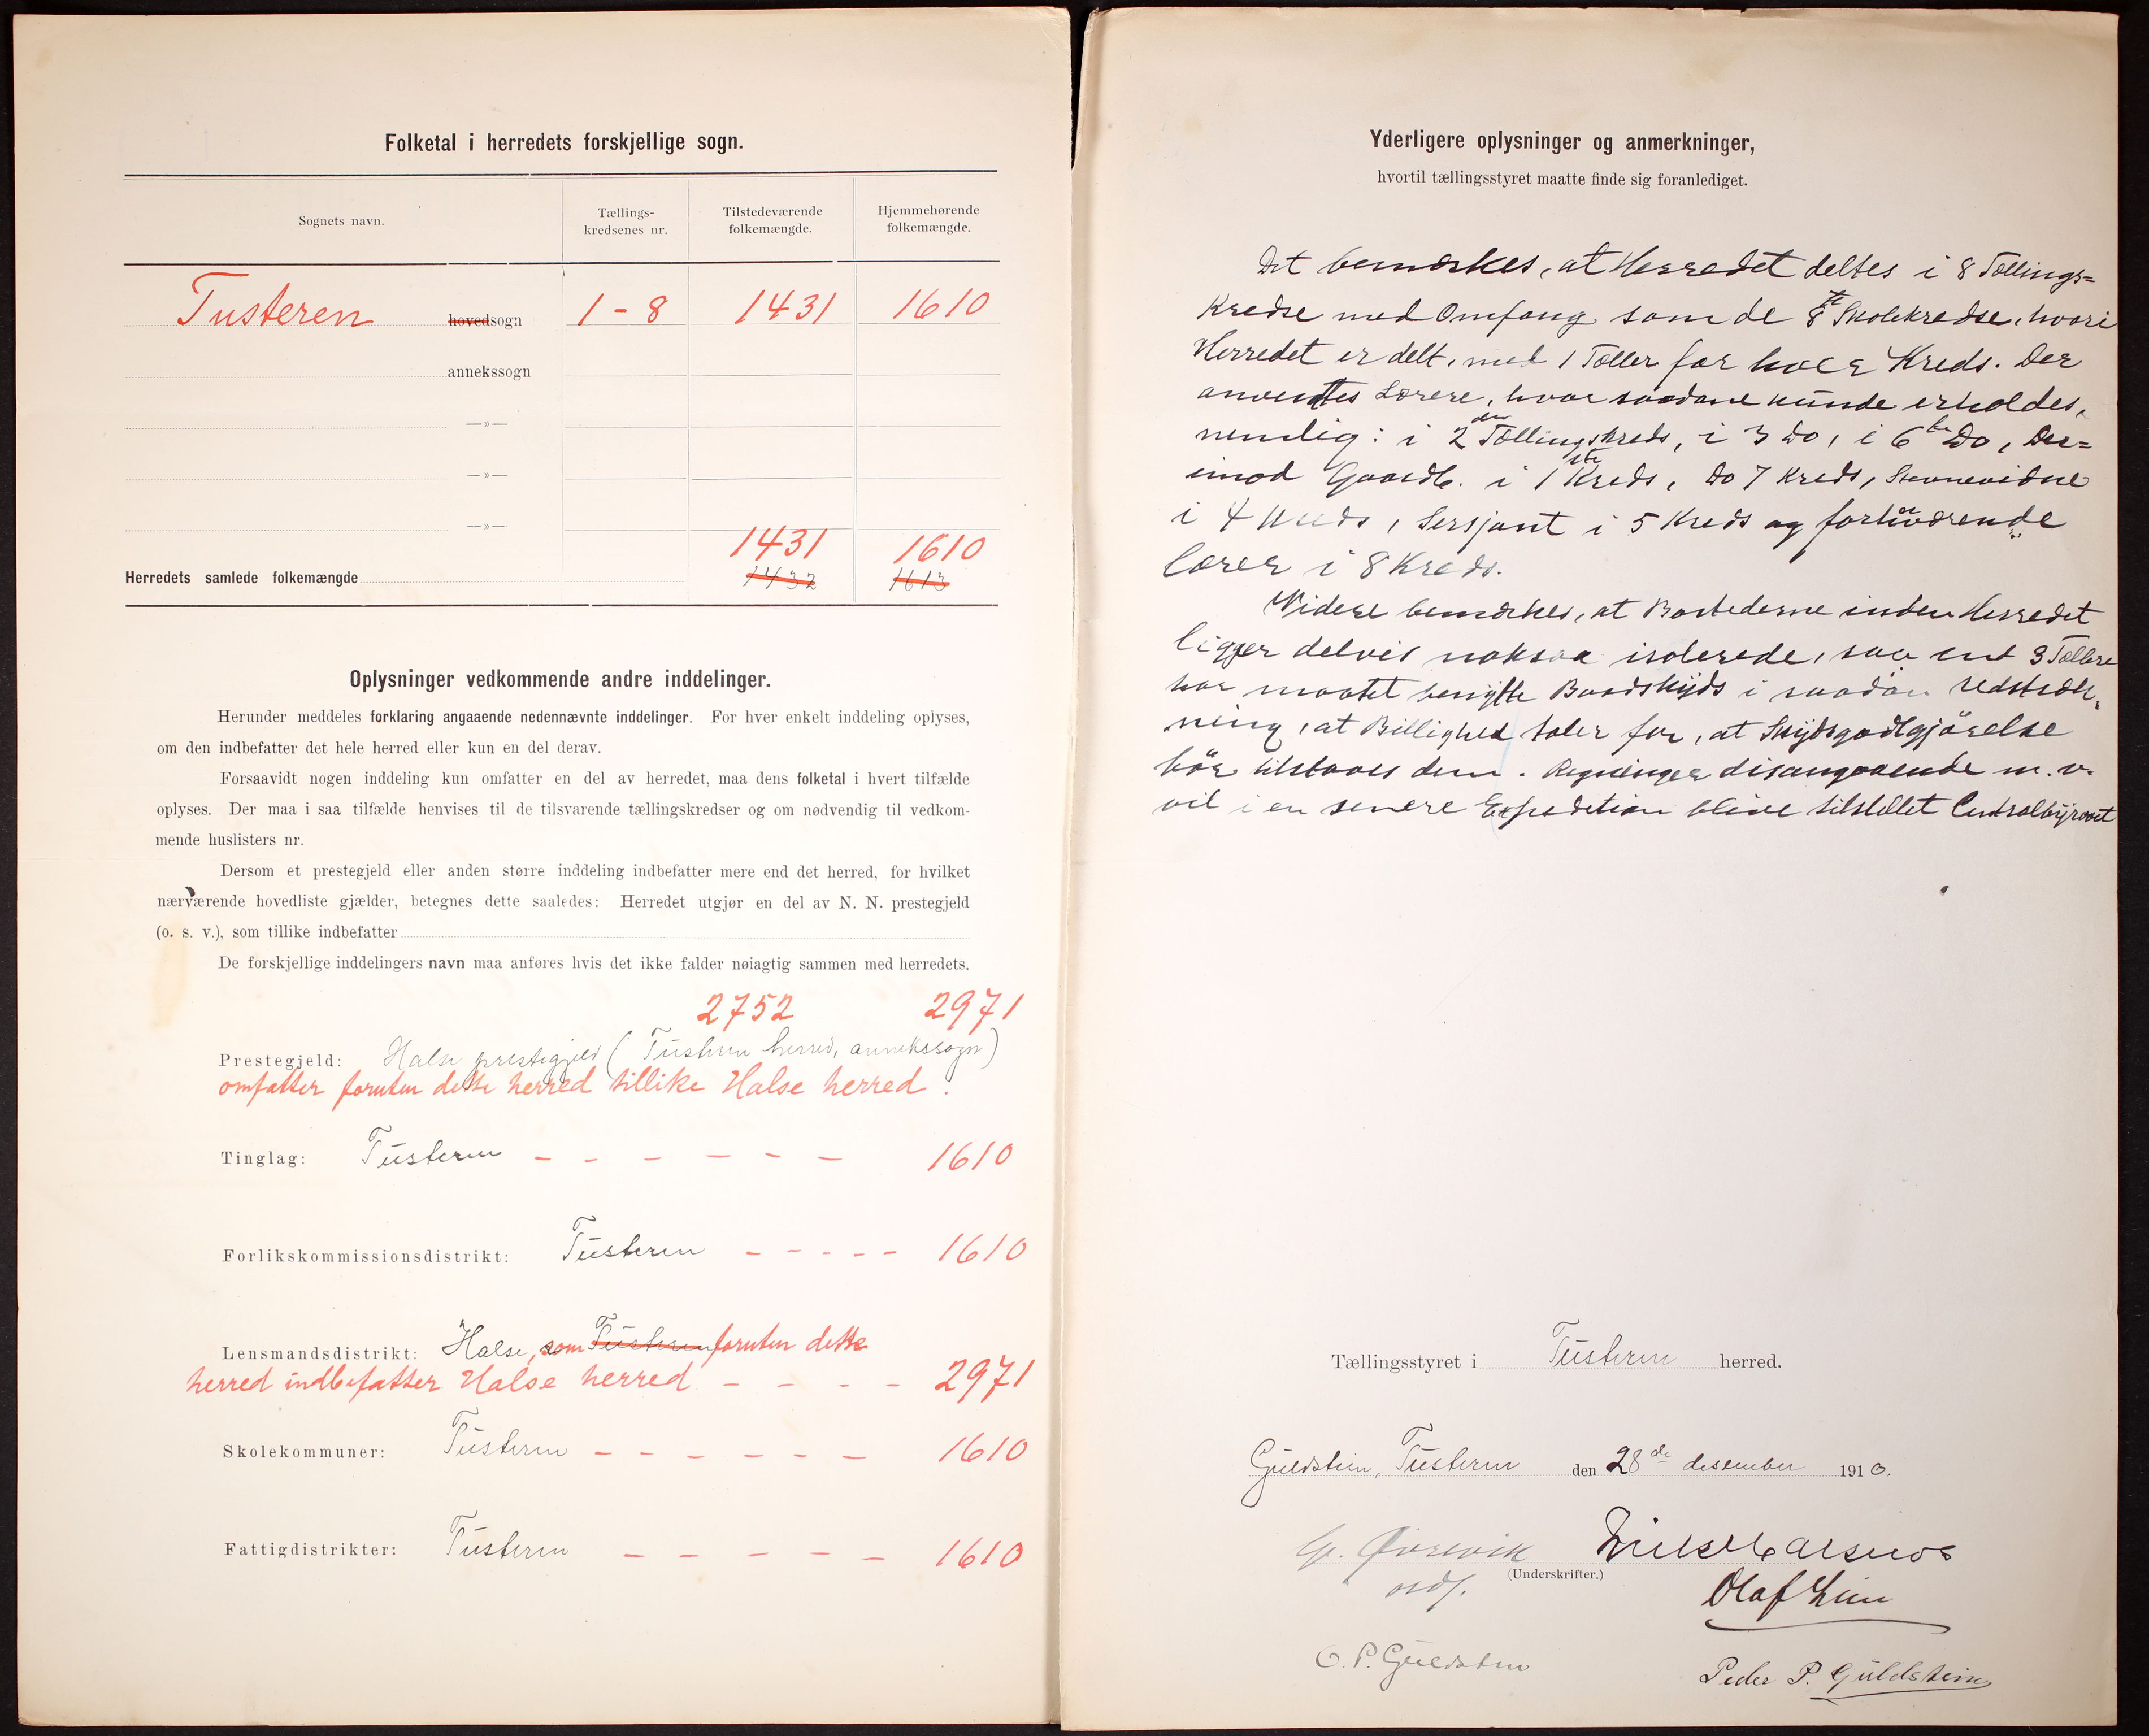 Folketal i herredets forskjellige sogn.
Sognets navn.
Tællings-
kredsenes nr.
Tilstedeværende
folkemængde.
Hjemmehørende
folkemængde.
Tusteren hovedsogn 1 - 8 1431 1610
annekssogn
—»—
—»—
—»—
1431 1610
Herredets samlede folkemængde 1432 1613
Oplysninger vedkommende andre inddelinger.
Herunder meddeles forklaring angaaende nedennævnte inddelinger. For hver enkelt inddeling oplyses,
om den indbefatter det hele herred eller kun en del derav.
Forsaavidt nogen inddeling kun omfatter en del av herredet, maa dens folketal i hvert tilfælde
oplyses. Der maa i saa tilfælde henvises til de tilsvarende tællingskredser og om nødvendig til vedkom-
mende huslisters nr.
Dersom et prestegjeld eller anden større inddeling indbefatter mere end det herred, for hvilket
nærværende hovedliste gjælder, betegnes dette saaledes: Herredet utgjør en del av N. N. prestegjeld
(o. s. v.), som tillike indbefatter
De forskjellige inddelingers navn maa anføres hvis det ikke falder nøiagtig sammen med herredets.
2752 2971
Prestegjeld: Halse prestegjeld (Tusteren herred, annekssogn)
omfatter foruten dette herred tillike Halse herred.
Tinglag: Tusteren - - - - - - 1610
Forlikskommissionsdistrikt: Tusteren - - - - - 1610
Lensmandsdistrikt: Halse, som Tusteren foruten dette
herred indbefatter Halse herred - - - - 2971
Skolekommuner: Tusteren - - - - - - 1610
Fattigdistrikter: Tusteren - - - - - 1610
Yderligere oplysninger og anmerkninger,
hvortil tællingsstyret maatte finde sig foranlediget.
Det bemærkes, at Herredet deltes i 8 Tællings=
Kredse med Omfang som de 8te Skolekredse, hvori
Herredet er delt, med 1 Tæller for hver Kreds. Der
anvendtes Lærere, hvor saadane kunde erholdes,
nemlig: i 2den Tællingskreds, i 3 Do, i 6te Do, Der=
imod Gaardb. i 1ste Kreds, Do 7 Kreds, Stevnevidne
i 4 Kreds, Sersjant i 5 Kreds og forhenværende
lærer i 8 Kreds.
Videre bemærkes, at Bostederne inden Herredet
ligger delvis noksaa isolerede, saa at 3 Tællere
har maatet benytte Baadskyds i saadan Udstræk-
ning, at Billighed taler for, at Skydsgodtgjörelse
bör tilstaaes dem. Regninger disangaaende m. v.
vil i en senere Expedition blive tilstillet Centralbyraaet
Tællingsstyret i Tusteren herred.
Guldstein, Tusteren den 28de desember 1910.
Øvrevik
ordf.
(Underskrifter.)
Olaf Lein
O. P. Guldstein
Peder P. Guldstein